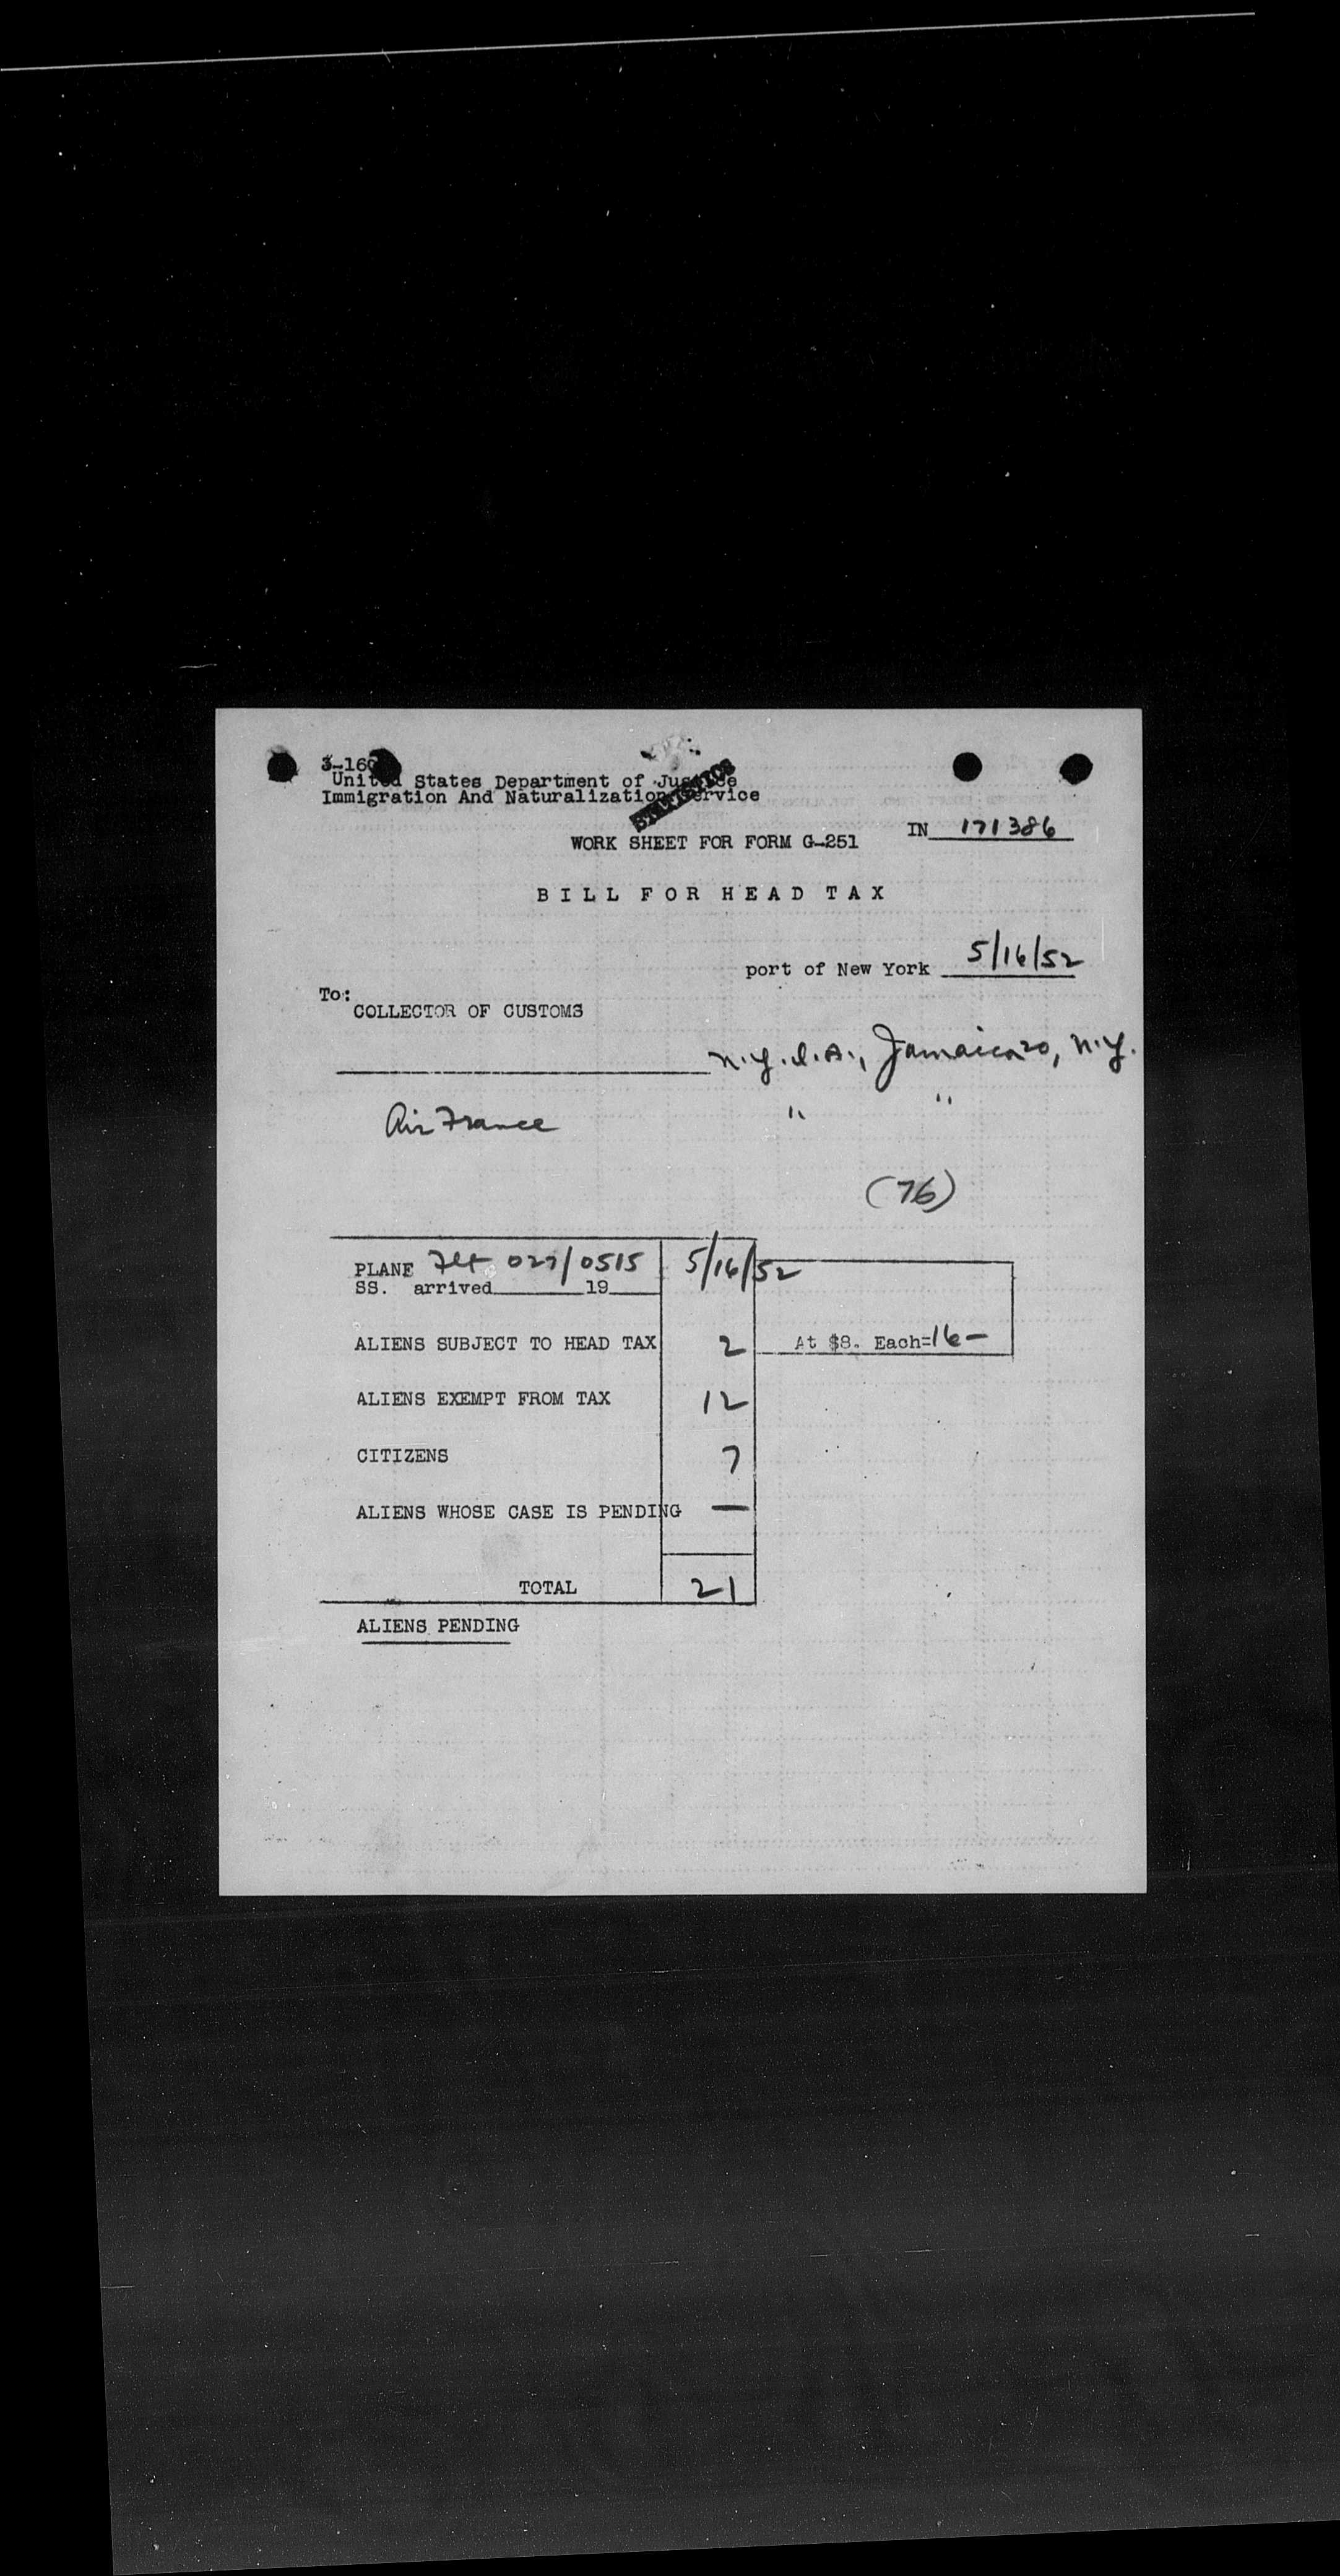 3-160
United States Department of Justice
Immigration And Naturalization Service
STATISTICS
IN 171386
WORK SHEET FOR FORM G-251
BILL FOR HEAD TAX
port of New York 5/16/52
To:
COLLECTOR OF CUSTOMS
N.Y.I.A., Jamaica 20, N.Y.
Air France " "
(76)
PLANE Flt 027/0515 5/16/52
SS. arrived 19
ALIENS SUBJECT TO HEAD TAX 2 At $8. Each=16-
ALIENS EXEMPT FROM TAX 12
CITIZENS 7
ALIENS WHOSE CASE IS PENDING —
TOTAL 21
ALIENS PENDING